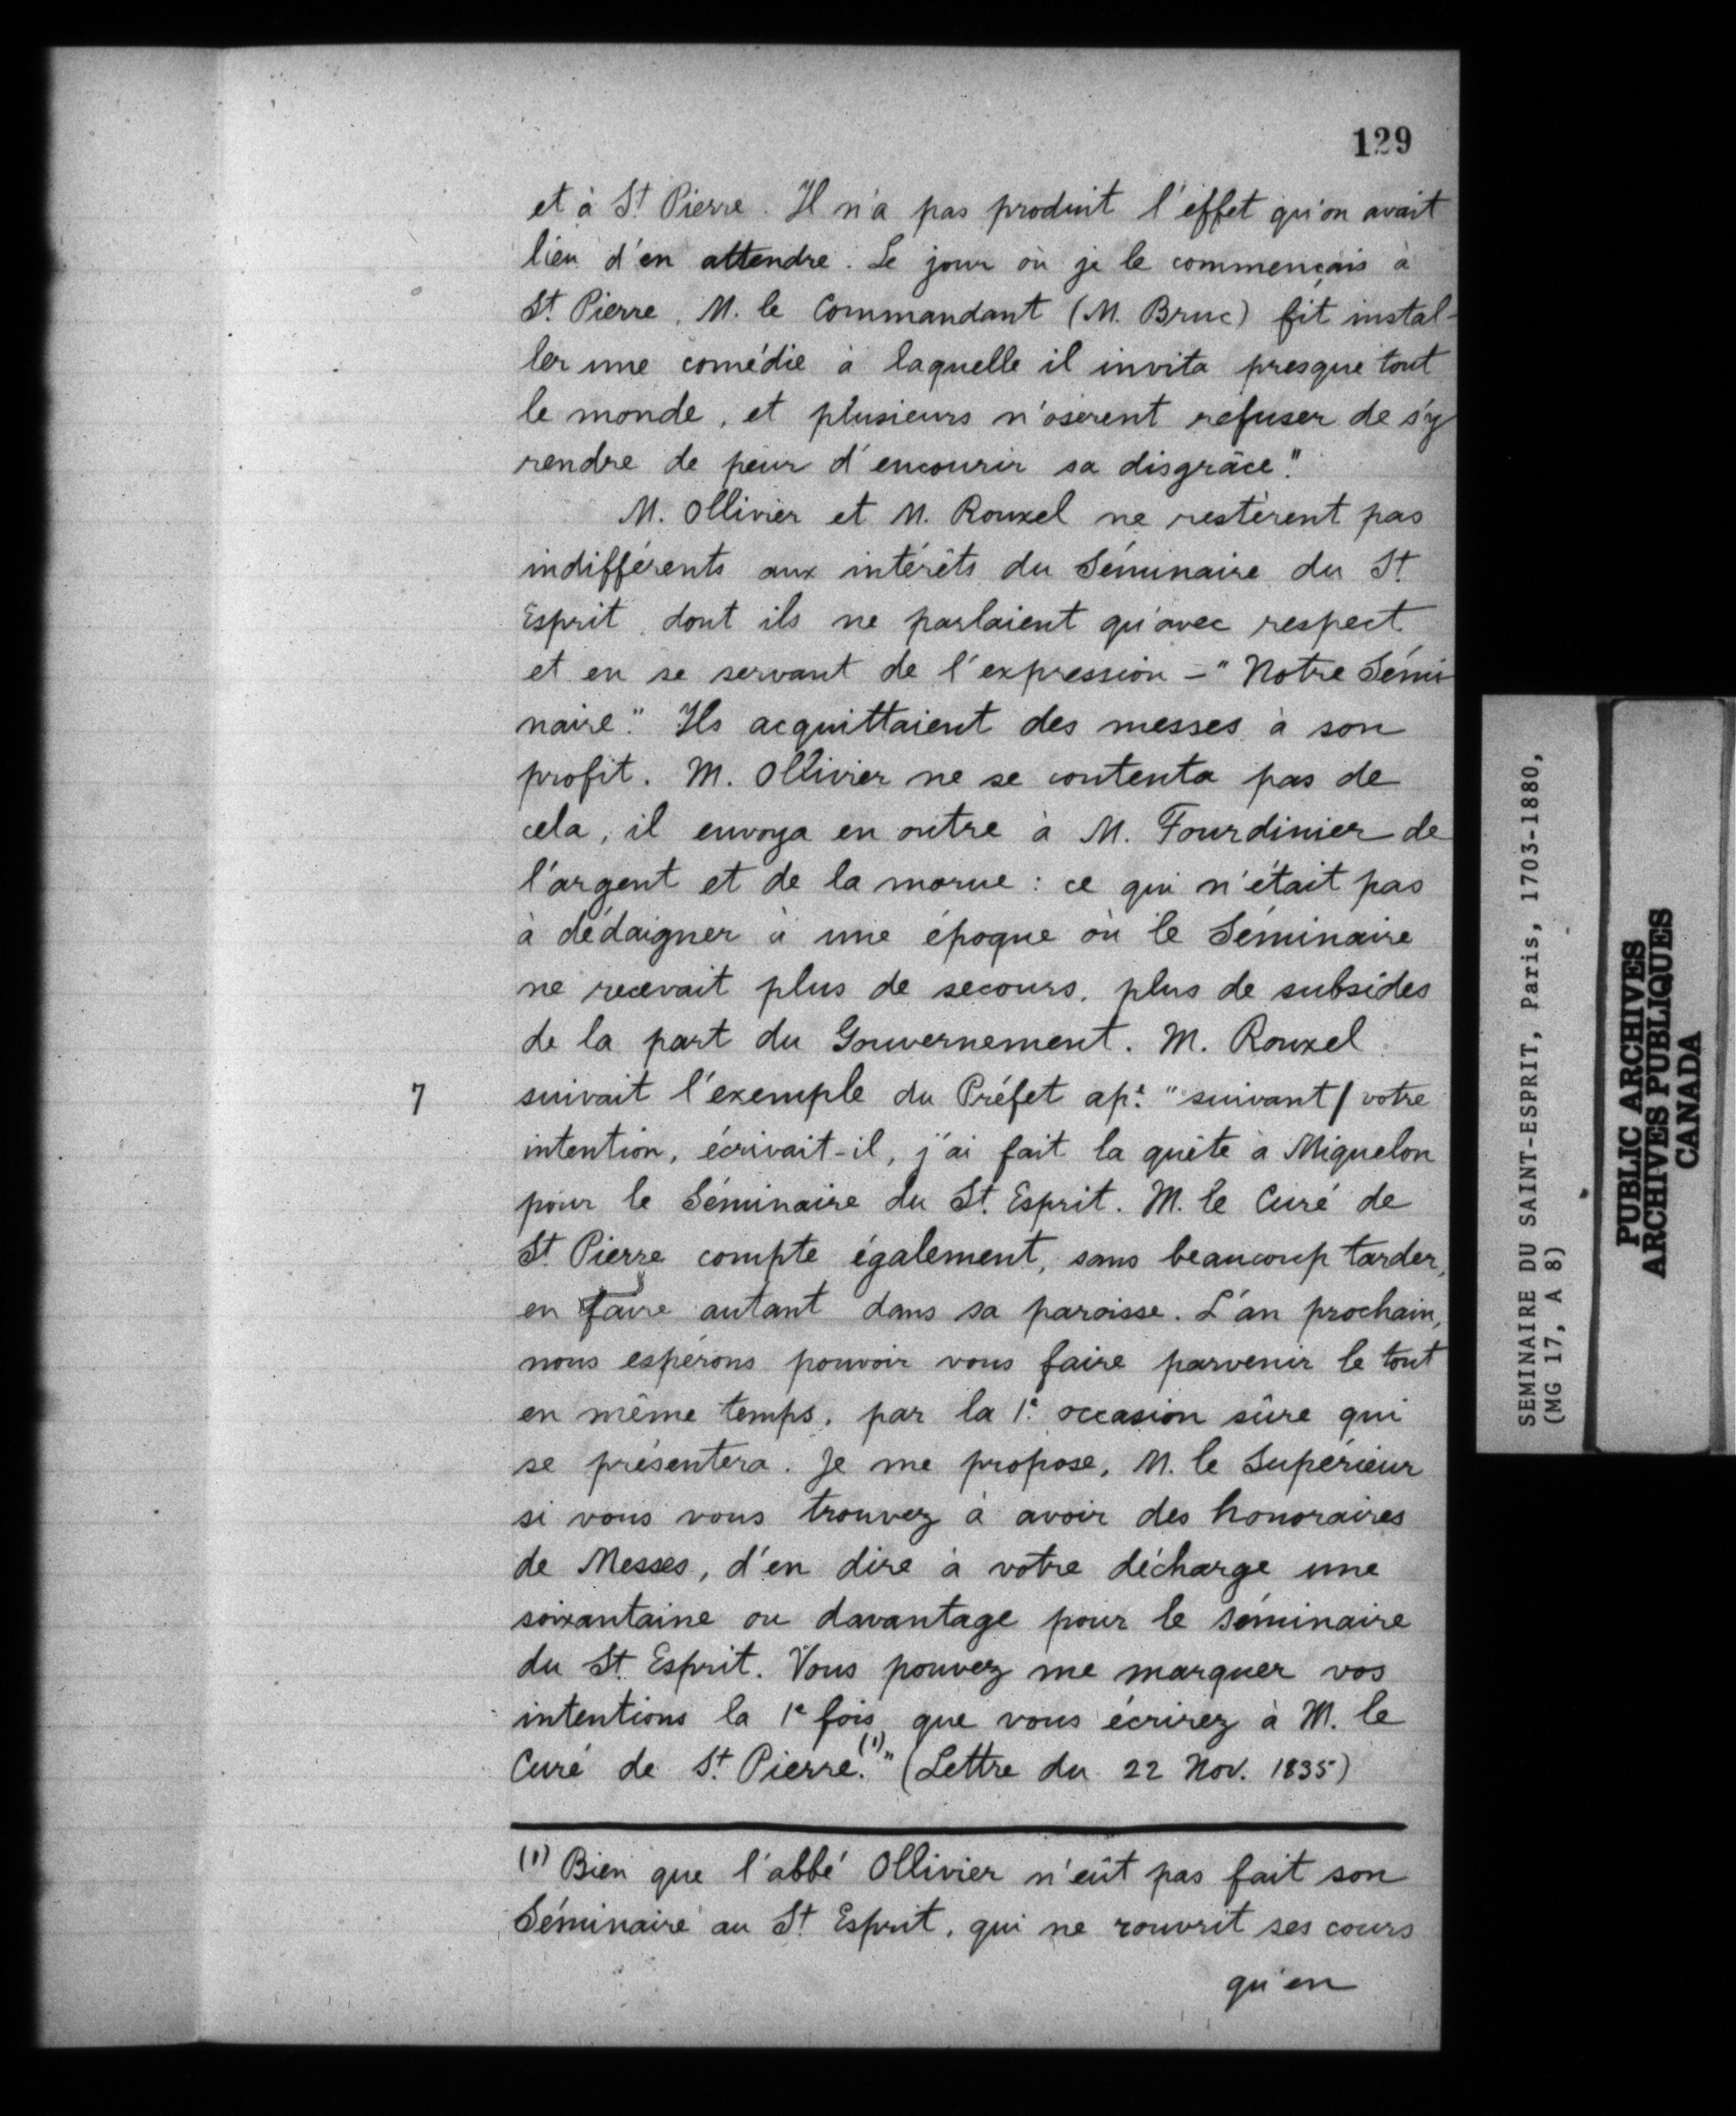 129
et à St Pierre. Il n'a pas produit l'effet qu'on avait
lieu d'en attendre. Le jour où je le commençais à
St. Pierre, M. le Commandant (M. Bruc) fit instal-
ler une comédie à laquelle il invita presque tout
le monde, et plusieurs n'osèrent refuser de s'y
rendre de peur d'encourir sa disgrâce."
M. Ollivier et M. Rouxel ne restèrent pas
indifférents aux intérêts du Séminaire du St
Esprit, dont ils ne parlaient qu'avec respect
et en se servant de l'expression - "Notre Sémi-
naire." Ils acquittaient des messes à son
profit. M. Ollivier ne se contenta pas de
cela, il envoya en outre à M. Fourdinier de
l'argent et de la morue : ce qui n'était pas
à dédaigner à une époque où le Séminaire
ne recevait plus de secours, plus de subsides
de la part du Gouvernement. M. Rouxel
7 suivait l'exemple du Préfet ap.e "suivant / votre
intention, écrivait-il, j'ai fait la quête à Miquelon
pour le Séminaire du St. Esprit. M. le Curé de
St. Pierre compte également, sans beaucoup tarder,
en faire autant dans sa paroisse. L'an prochain,
nous espérons pouvoir vous faire parvenir le tout
en même temps, par la 1e occasion sûre qui
se présentera. Je me propose, M. le Supérieur
si vous vous trouvez à avoir des honoraires
de Messes, d'en dire à votre décharge une
soixantaine ou davantage pour le séminaire
du St. Esprit. Vous pouvez me marquer vos
intentions la 1e fois que vous écrirez à M. le
Curé de St. Pierre.(1)" (Lettre du 22 Nov. 1835)
(1) Bien que l'abbé Ollivier n'eût pas fait son
Séminaire au St Esprit, qui ne rouvrit ses cours
qu'en
SEMINAIRE DU SAINT-ESPRIT, Paris, 1703-1880,
(MG 17, A 8)
PUBLIC ARCHIVES
ARCHIVES PUBLIQUES
CANADA